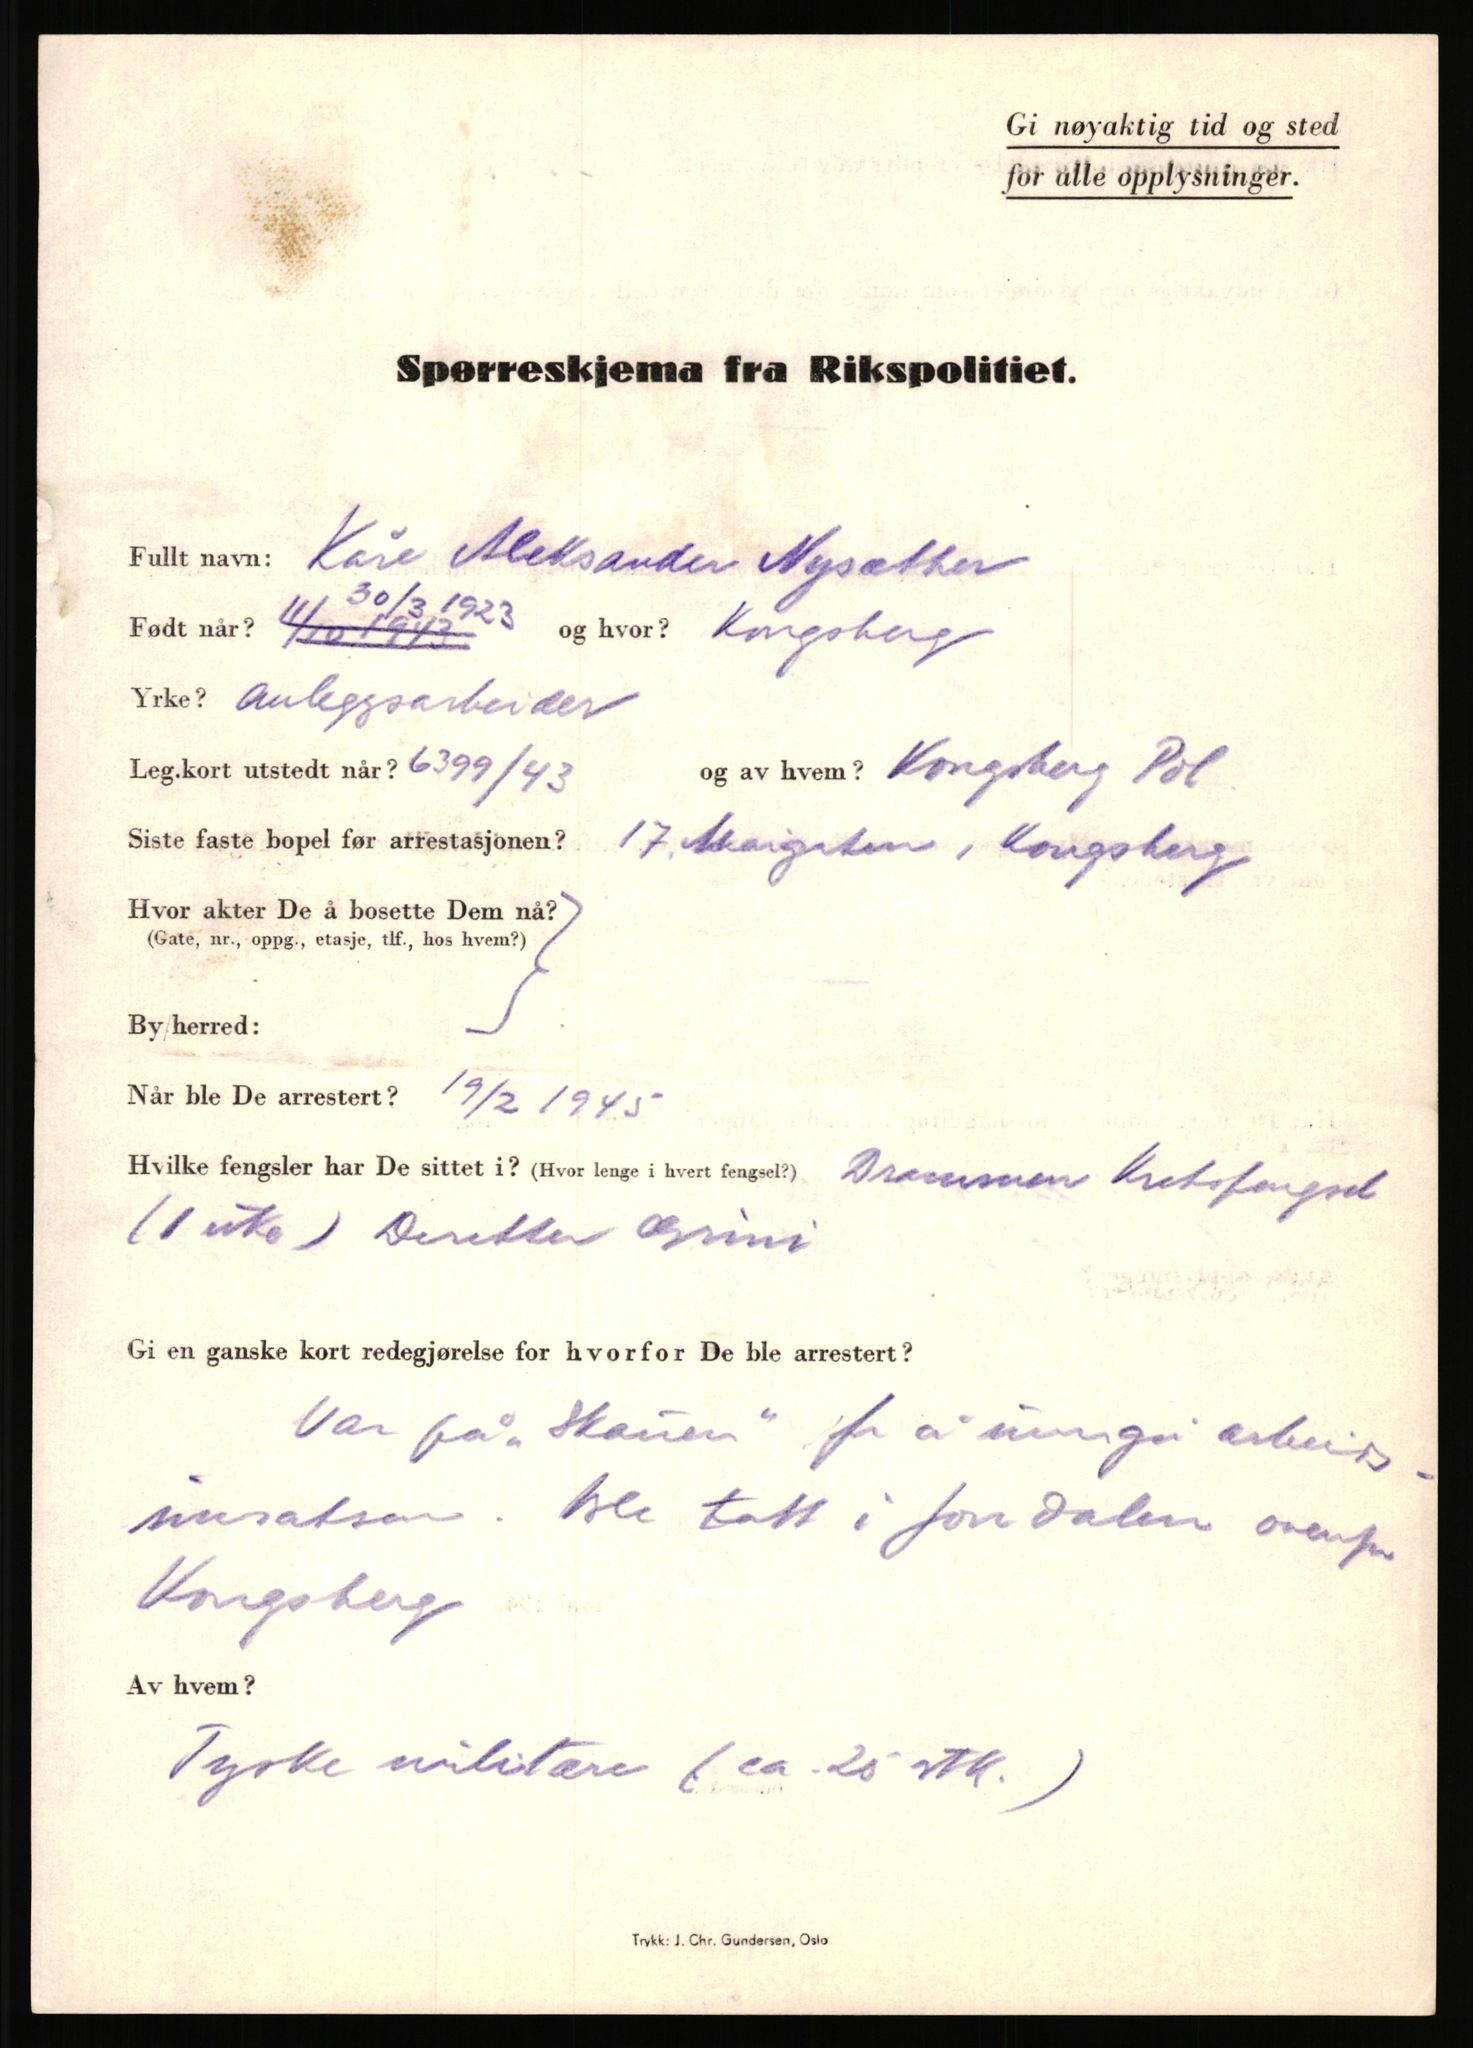 Gi nøyaktig tid og sted
for alle opplysninger.
Spørreskjema fra Rikspolitiet.
Fullt navn: Kåre Aleksander Nysæther
30/3 1923
Født når? 11/10 1943 og hvor? Kongsberg
Yrke? Anleggsarbeider
Leg.kort utstedt når? 6399/43 og av hvem? Kongsberg Pol
Siste faste bopel før arrestasjonen? 17. Maigaten, Kongsberg
Hvor akter De å bosette Dem nå?
(Gate, nr., oppg., etasje, tlf., hos hvem?)
By/herred:
Når ble De arrestert? 19/2 1945
Hvilke fengsler har De sittet i? (Hvor lenge i hvert fengsel?) Drammen Kretsfengsel
(1 uke) Deretter Grini
Gi en ganske kort redegjørelse for hvorfor De ble arrestert?
Var på „Skauen" for å unngå arbeids-
innsatsen. Ble tatt i Jondalen ovenfor
Kongsberg
Av hvem?
Tyske militære (ca. 25 stk.)
Trykk: J. Chr. Gundersen, Oslo